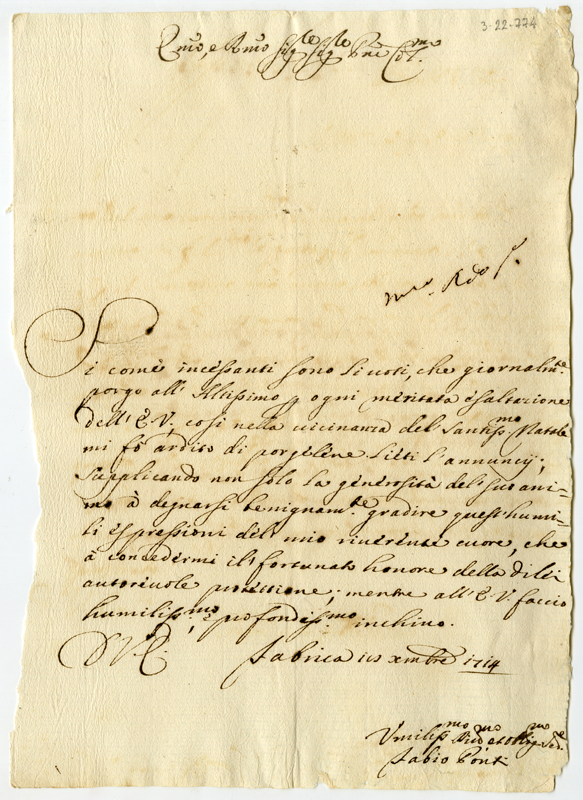 3-22-774
Em̃o, e Rm̃o Sig.re Sig.re Pñe Col.mo
m.to Rdo
Si come incessanti sono li voti, che giornalm.te
porgo all' Altissimo p ogni meritata esaltazione
dell' E.V. così nella vicinanza del Santiss.mo Natale
mi fò ardito di porgelene lieti l'annuncij;
supplicando non solo la generosità del suo ani=
mo à degnarsi benignam.te gradire quest' humi=
li espressioni del mio riverente cuore, che
à concedermi il fortunato honore della di lei
autorevole protettione; mentre all' E.V. faccio
humiliss.mo, e profondiss.mo inchino.
D.V.E. Fabrica xmbre 1714
Vmiliss.mo et oblig.mo
Fabio Ponti